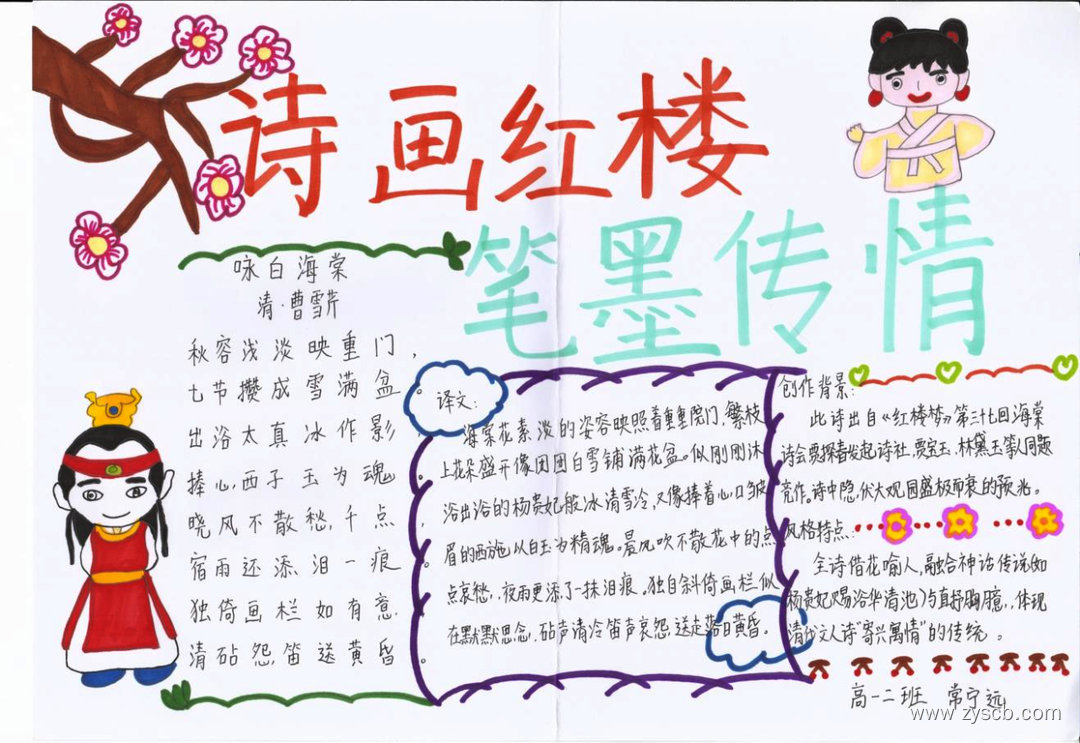 诗画红楼
笔墨传情
咏白海棠
清·曹雪芹
秋容浅淡映重门,
七节攒成雪满盆
出浴太真冰作影
捧心西子玉为魂
晓风不散愁千点,
宿雨还添泪一痕
独倚画栏如有意,
清砧怨笛送黄昏。
译文:
海棠花素淡的姿容映照着重重院门,繁枝
上花朵盛开像团团白雪铺满花盆。似刚刚沐
浴出浴的杨贵妃般冰清雪冷,又像捧着心口皱
眉的西施以白玉为精魂。晨风吹不散花中的点
点哀愁,夜雨更添了一抹泪痕。独自斜倚画栏似
在默默思念,砧声清冷笛声哀怨送走落日黄昏。
创作背景:
此诗出自《红楼梦》第三十七回海棠
诗会贾探春发起诗社,贾宝玉、林黛玉等人同题
竞作。诗中隐伏大观园盛极而衰的预兆。
风格特点:
全诗借花喻人,融合神话传说(如
杨贵妃赐浴华清池)与直抒胸臆,体现
清代文人诗“寄兴寓情”的传统。
高一二班 常宁远
www.zyscb.com